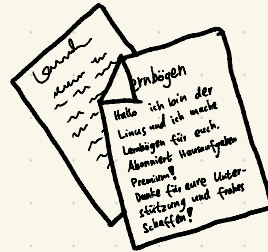 Lernb
ernbögen
Hallo ich bin der
Linus und ich mache
Lernbögen für euch.
Abonniert Hausaufgaben
Premium!
Danke für eure Unter-
stützung und frohes
Schaffen!